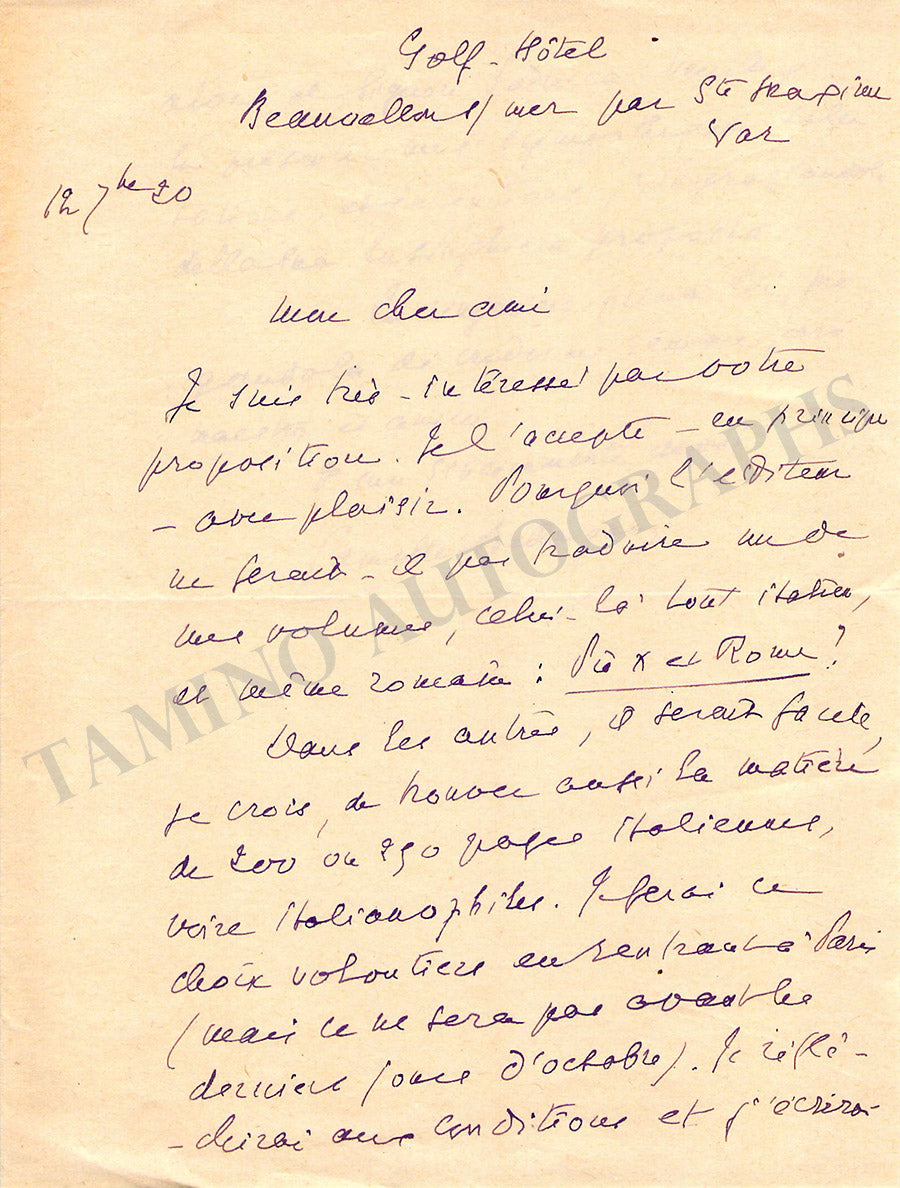 Golf-Hôtel
Beauvallon s/ mer par Ste Maxime
Var
12 7bre 20
Mon cher ami
Je suis très-intéressé par votre
proposition. Je l'accepte - en principe
- avec plaisir. Pourquoi l'éditeur
ne ferait-il pas traduire un de
mes volumes, celui-là tout italien,
et même romain : Pie X et Rome?
Dans les autres, il serait facile,
je crois, de trouver aussi la matière
de 200 ou 250 pages italiennes,
voire italianophiles. Je ferai ce
choix volontiers en rentrant à Paris
(mais ce ne sera pas avant les
derniers jours d'octobre). Je réflé-
-chirai aux conditions et j'écrirai
TAMINO AUTOGRAPHS